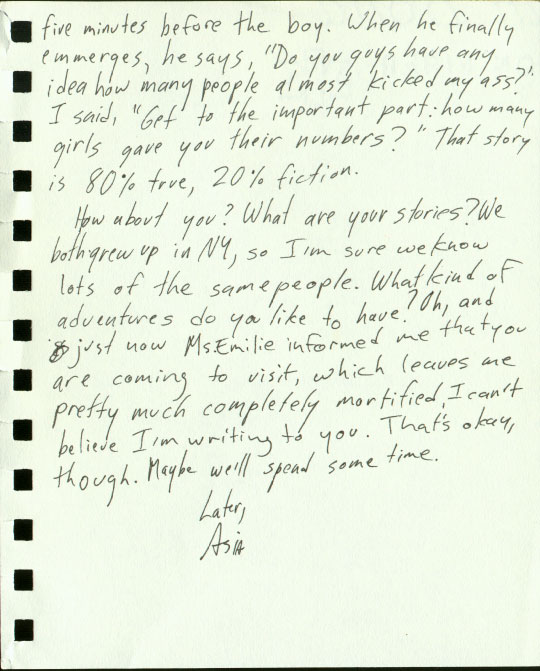 five minutes before the boy. When he finally
emmerges, he says, "Do you guys have any
idea how many people almost kicked my ass?"
I said, "Get to the important part: how many
girls gave you their numbers?" That story
is 80% true, 20% fiction.
How about you? What are your stories? We
both grew up in NY, so I'm sure we know
lots of the same people. What kind of
adventures do you like to have? Oh, and
just now Ms. Emilie informed me that you
are coming to visit, which leaves me
pretty much completely mortified, I can't
believe I'm writing to you. That's okay,
though. Maybe we'll spend some time.
Later,
Asia